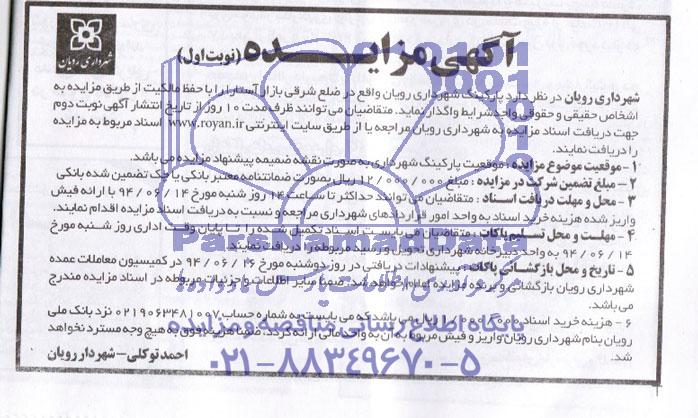 آگهی مزایـــده (نوبت اول)
شهرداری رویان
شهرداری رویان در نظر دارد پارکینگ شهرداری رویان واقع در ضلع شرقی بازار آستارا را با حفظ مالکیت از طریق مزایده به
اشخاص حقیقی و حقوقی واجد شرایط واگذار نماید. متقاضیان می توانند ظرف مدت ۱۰ روز از تاریخ انتشار آگهی نوبت دوم
جهت دریافت اسناد مزایده به شهرداری رویان مراجعه یا از طریق سایت اینترنتی www.royan.ir اسناد مربوط به مزایده
را دریافت نمایند.
۱- موقعیت موضوع مزایده : موقعیت پارکینگ شهرداری به صورت نقشه ضمیمه پیشنهاد مزایده می باشد.
۲- مبلغ تضمین شرکت در مزایده : مبلغ ۱۲/۰۰۰/۰۰۰ ریال بصورت ضمانتنامه معتبر بانکی یا چک تضمین شده بانکی
۳- محل و مهلت دریافت اسناد : متقاضیان می توانند حداکثر تا ساعت ۱۴ روز شنبه مورخ ۹۴/۰۶/۱۴ با ارائه فیش
واریز شده هزینه خرید اسناد به واحد امور قراردادهای شهرداری مراجعه و نسبت به دریافت اسناد مزایده اقدام نمایند.
۴- مهلت و محل تسلیم پاکات : متقاضیان می بایست اسناد تکمیل شده را تا پایان وقت اداری روز شنبه مورخ
۹۴/۰۶/۱۴ به واحد دبیرخانه شهرداری تحویل و رسید مربوطه را دریافت نمایند.
۵- تاریخ و محل بازگشائی پاکات : پیشنهادات دریافتی در روز دوشنبه مورخ ۹۴/۰۶/۱۶ در کمیسیون معاملات عمده
شهرداری رویان بازگشائی و برنده مزایده اعلام خواهد شد. ضمناً سایر اطلاعات و جزئیات مربوطه در اسناد مزایده مندرج
می باشد.
۶- هزینه خرید اسناد ۱/۰۰۰/۰۰۰ ریال می باشد که می بایست به شماره حساب ۰۲۱۹۰۶۳۴۸۱۰۰۷ نزد بانک ملی
رویان بنام شهرداری رویان واریز و فیش مربوط به آن به واحد مالی ارائه گردد. ضمناً هزینه فوق به هیچ وجه مسترد نخواهد
شد.
احمد توکلی - شهردار رویان
ParsNamadData
پایگاه اطلاع رسانی مناقصه و مزایده
۰۲۱-۸۸۳۴۹۶۷۰-۵